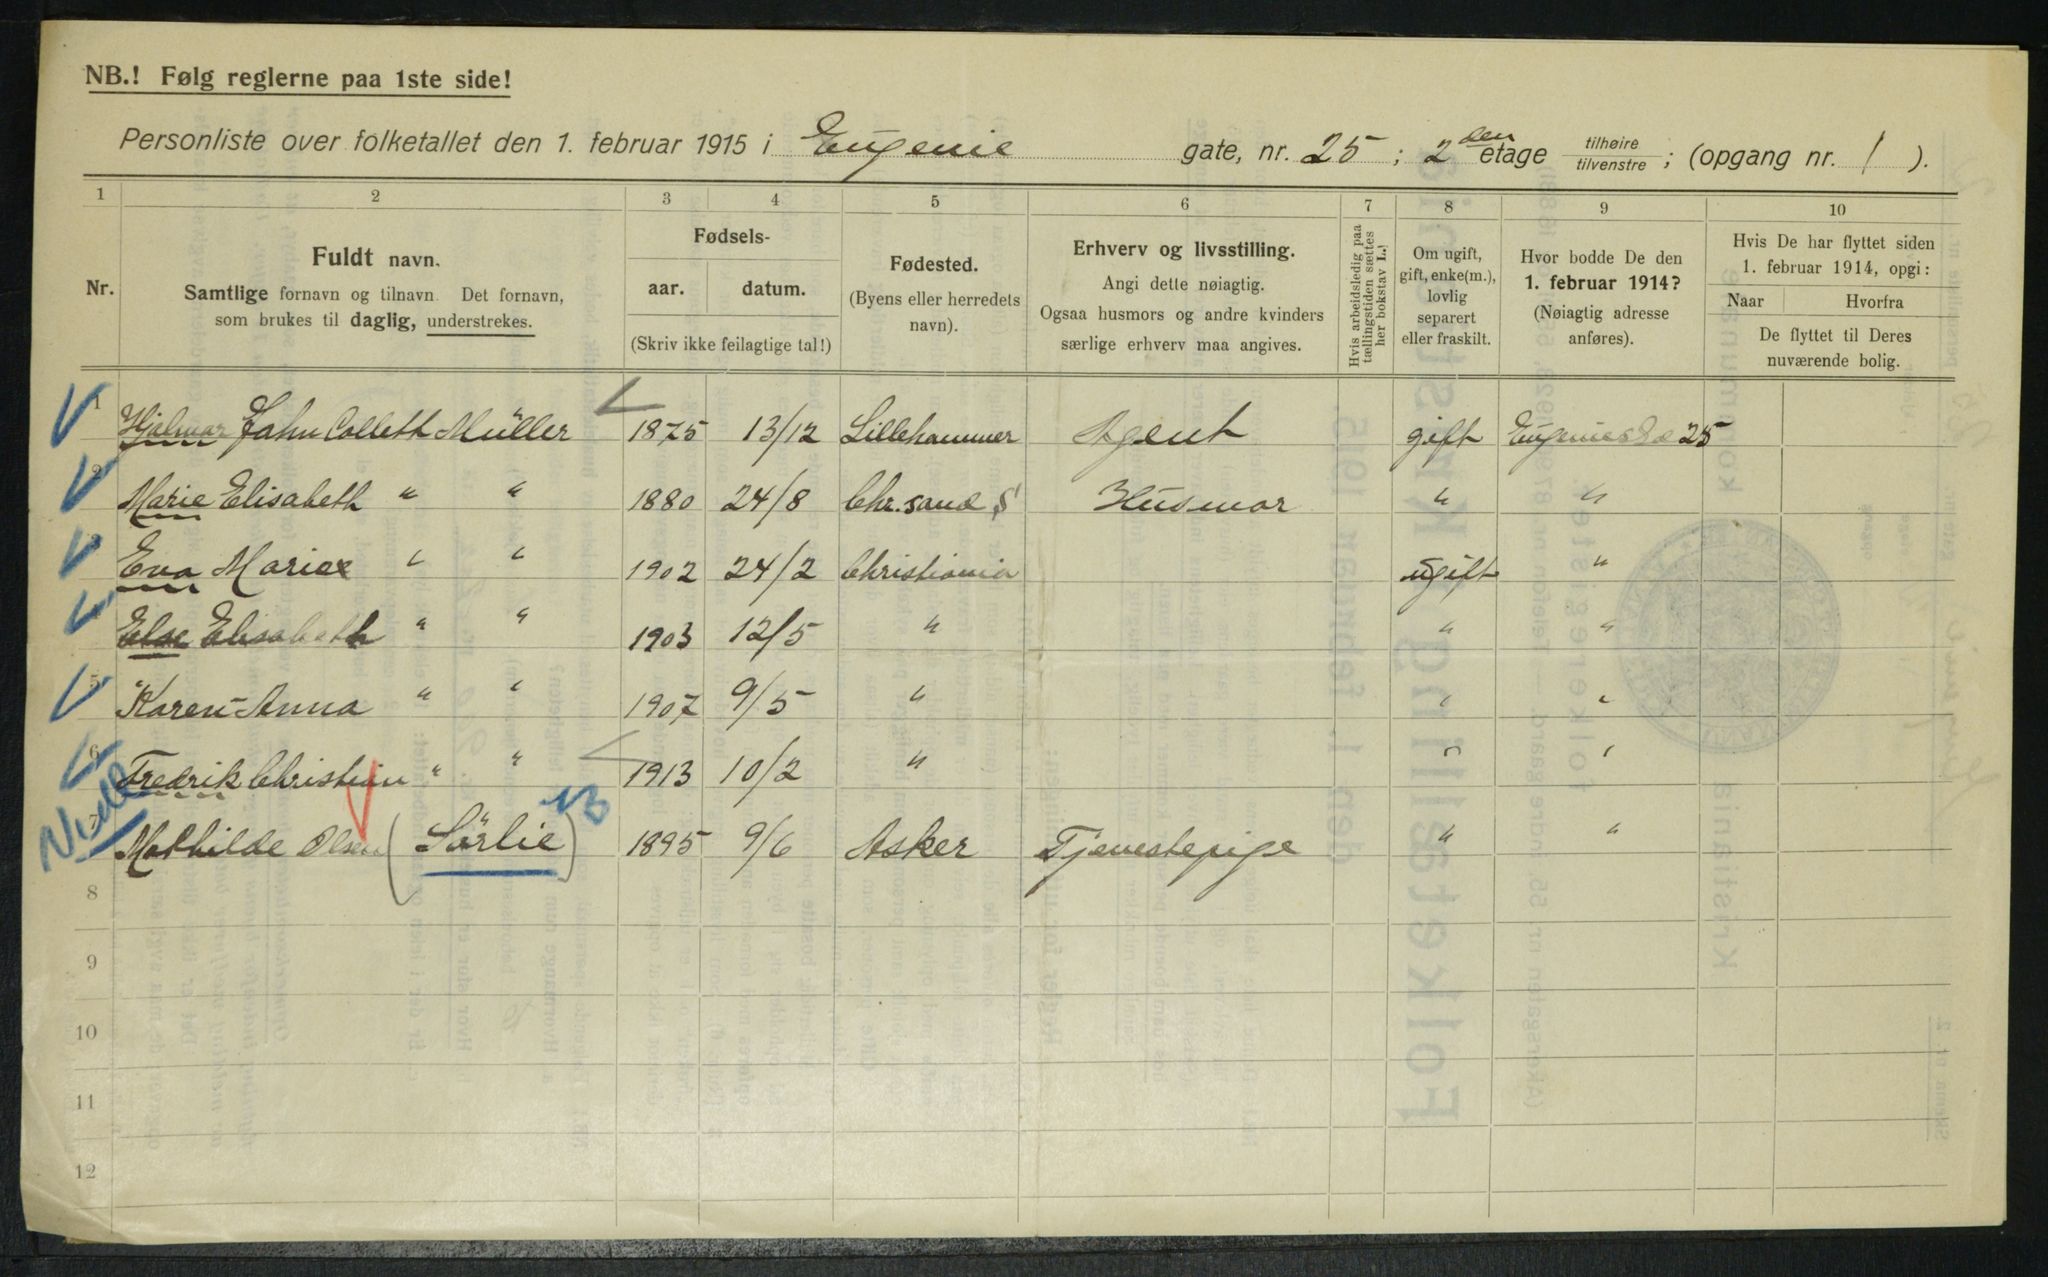 NB.! Følg reglerne paa 1ste side!
Personliste over folketallet den 1. februar 1915 i Eugenie gate, nr. 25 ; 2den etage tilhøire/tilvenstre ; (opgang nr. 1 ).
1 2 3 4 5 6 7 8 9 10
Nr.
Fuldt navn.
Samtlige fornavn og tilnavn. Det fornavn,
som brukes til daglig, understrekes.
Fødsels-
aar. datum.
(Skriv ikke feilagtige tal!)
Fødested.
(Byens eller herredets
navn).
Erhverv og livsstilling.
Angi dette nøiagtig.
Ogsaa husmors og andre kvinders
særlige erhverv maa angives.
Hvis arbeidsledig paa
tællingstiden sættes
her bokstav L.!
Om ugift,
gift, enke(m.),
lovlig
separert
eller fraskilt.
Hvor bodde De den
1. februar 1914?
(Nøiagtig adresse
anføres).
Hvis De har flyttet siden
1. februar 1914, opgi:
Naar Hvorfra
De flyttet til Deres
nuværende bolig.
1 Hjalmar Jahn Colleth Müller 1875 13/12 Lillehammer Agent gift Eugenies 25
2 Marie Elisabeth " " 1880 24/8 Chr.sand S Husmor " "
3 Eva Marie " " 1902 24/2 Christiania ugift "
Else Elisabeth " " 1903 12/5 " " "
5 Karen-Anna " " 1907 9/5 " " "
6 Fredrik Christian " " 1913 10/2 " " "
7 Mathilde Olsen (Sörlie) 1895 9/6 Asker Tjenestepige " "
8
9
10
11
12